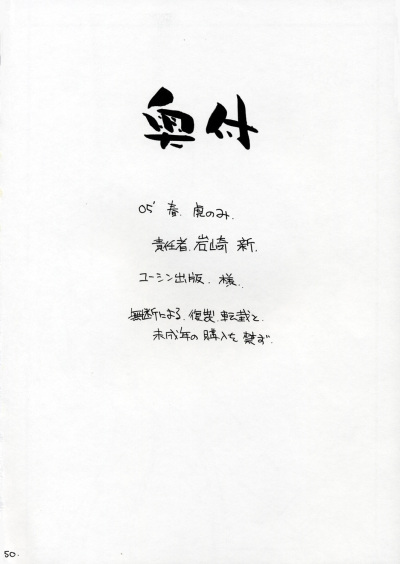 奥付
05' 春. 虎のみ.
責任者. 岩崎 新.
コーシン出版. 様.
無断による. 複製. 転載と.
未成年の購入を禁ず.
50.